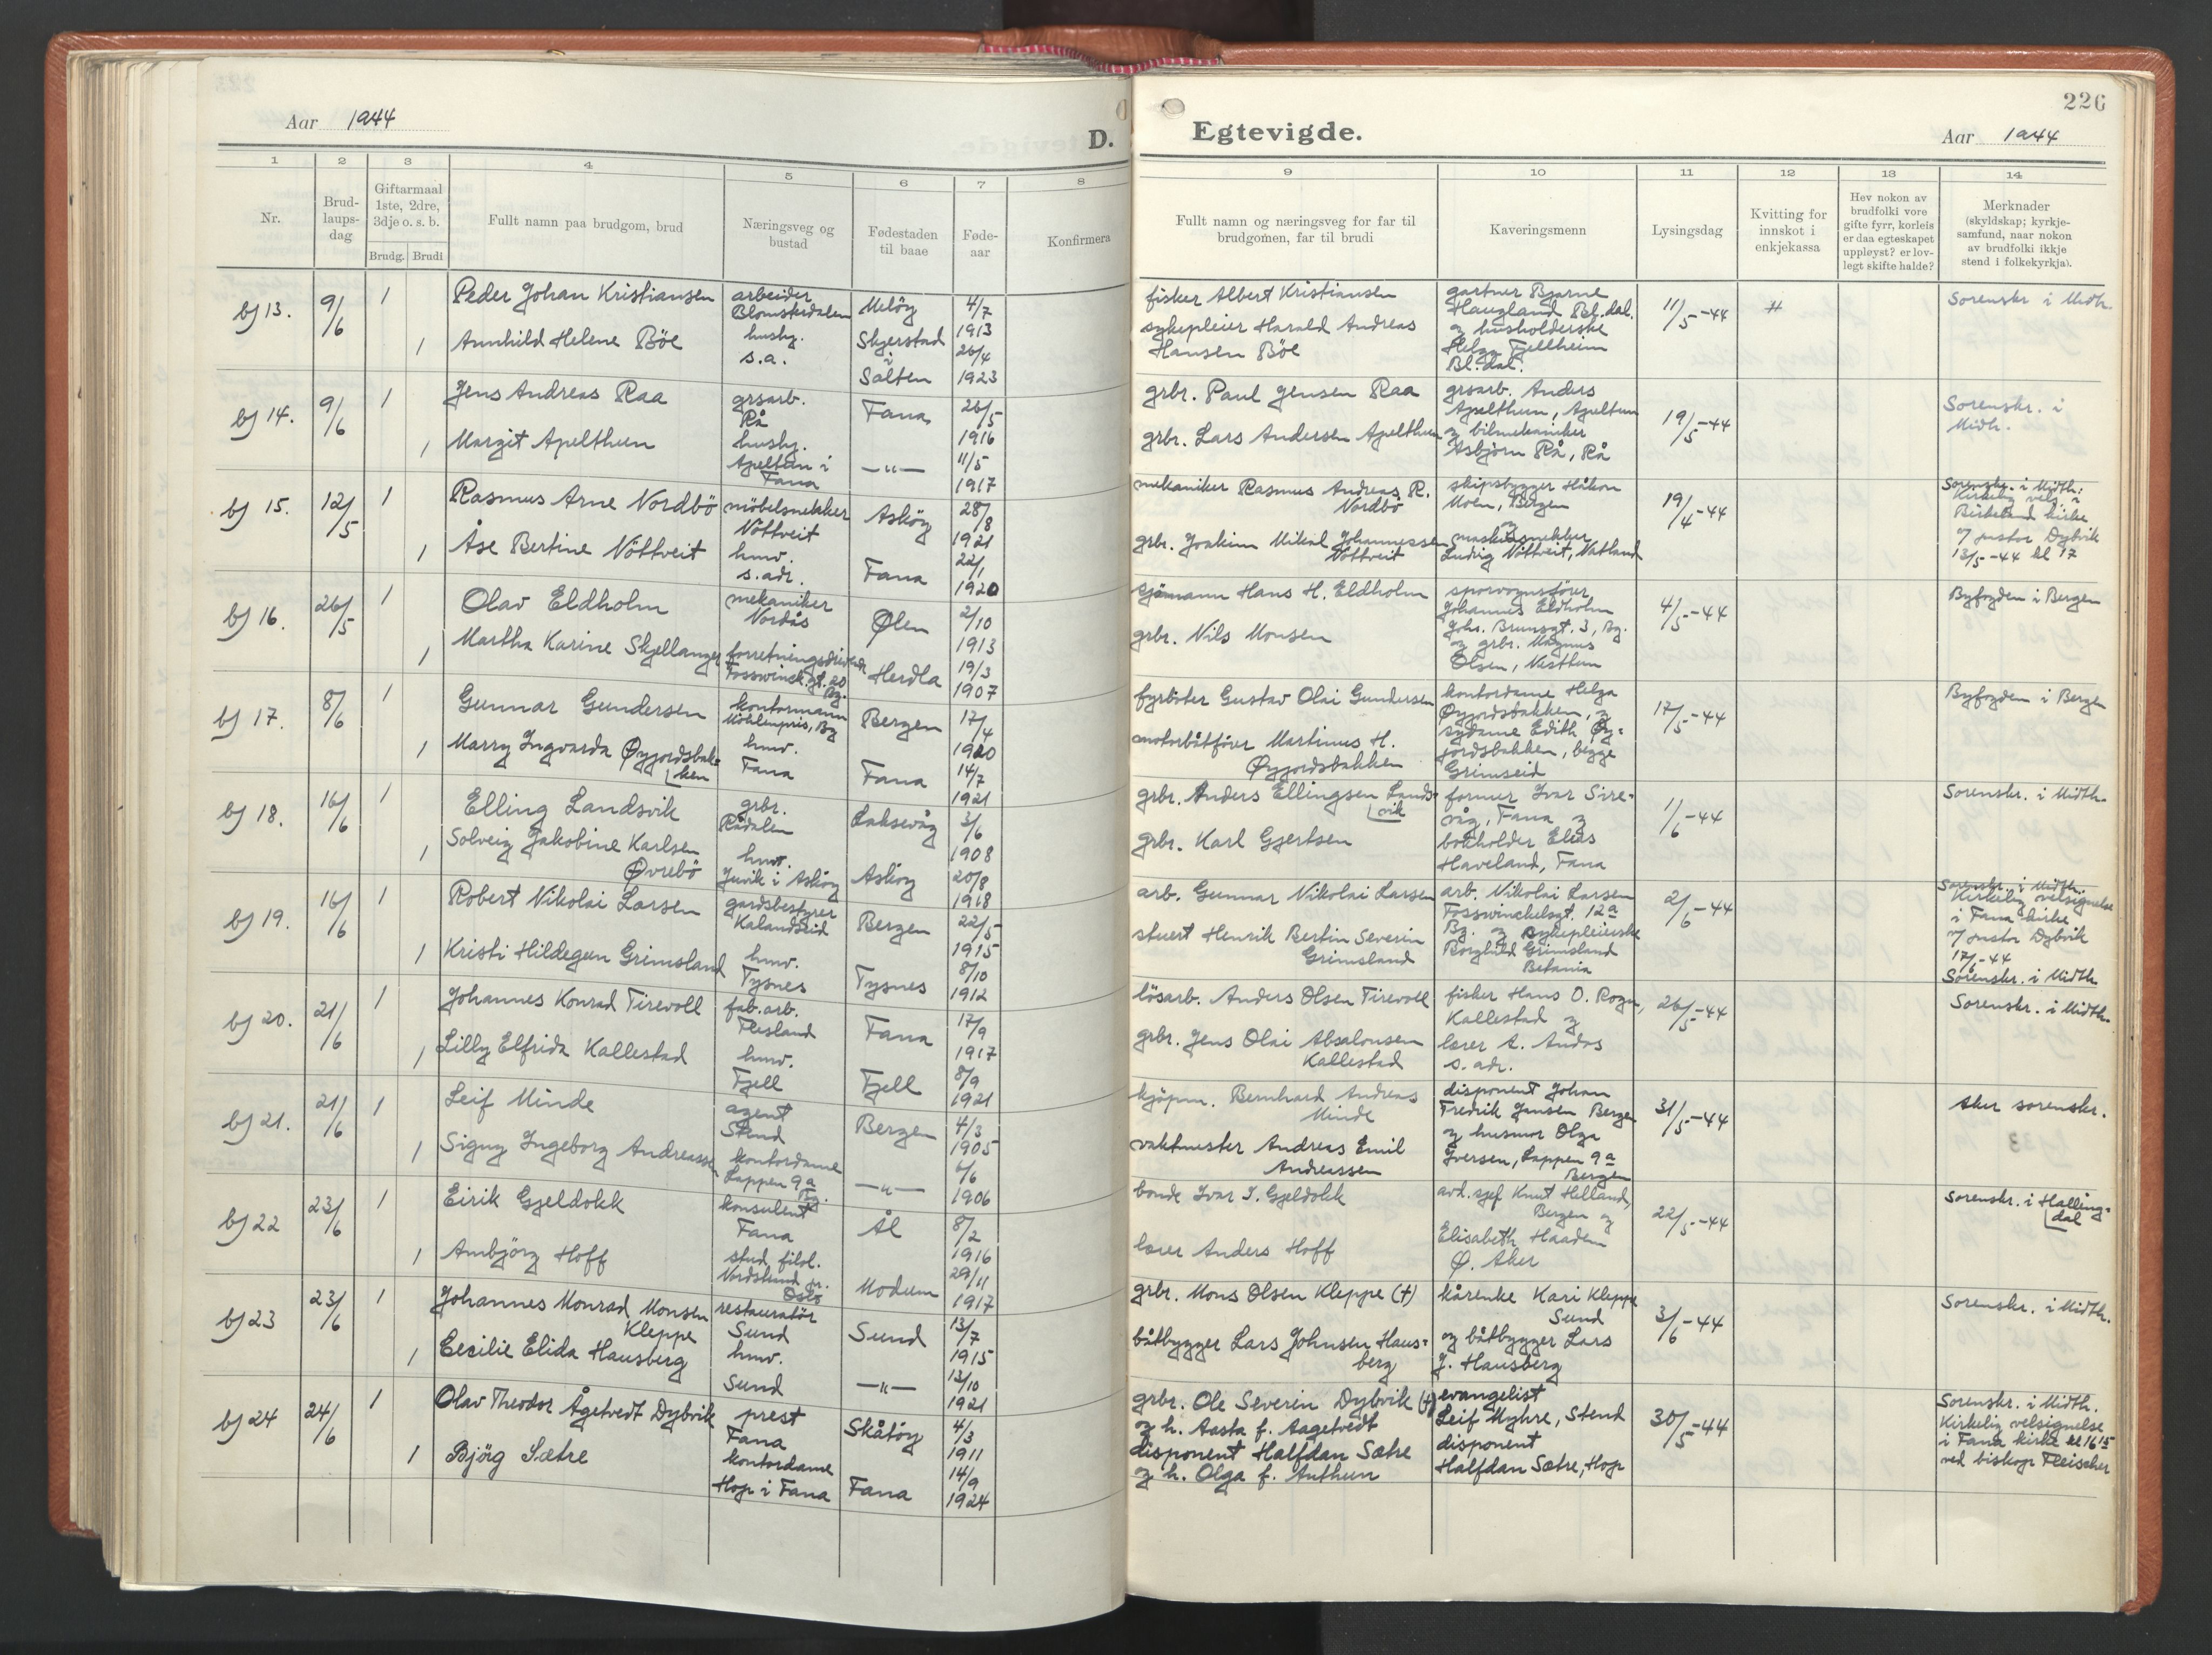 Aar 1944
D.
Egtevigde.
226
Aar 1944
1 2 3 4 5 6 7 8 9 10 11 12 13 14
Nr.
Brud-
laups-
dag
Giftarmaal
1ste, 2dre,
3dje o. s. b.
Brudg. Brudi
Fullt namn paa brudgom, brud
Næringsveg og
bustad
Fødestaden
til baae
Føde-
aar
Konfirmera
Fullt namn og næringsveg for far til
brudgomen, far til brudi
Kaveringsmenn
Lysingsdag
Kvitting for
innskot i
enkjekassa
Hev nokon av
brudfolki vore
gifte fyrr, korleis
er daa egteskapet
uppløyst? er lov-
legt skifte halde?
Merknader
(skyldskap; kyrkje-
samfund, naar nokon
av brudfolki ikkje
stend i folkekyrkja).
bj 13.
9/6
1
Peder Johan Kristiansen
arbeider
Blomsterdalen
Meløy
4/7
1913
1
Annhild Helene Böe
husby.
s.a.
Skjerstad
i
Salten
26/4
1923
fisker Albert Kristiansen
sykepleier Harald Andreas
Hansen Böe
gartner Bjarne
Haugland Bl.dal.
og husholderske
Helga Fjellheim
Bl.dal.
11/5-44
#
Sorenskr i Midth.
bj 14.
9/6
1
Jens Andreas Raa
grsarb.
Rå
Fana
26/5
1916
1
Margit Apelthun
husby.
Apeltun i
Fana
—"—
11/5
1917
grbr. Paul Jensen Raa
grbr. Lars Andersen Apelthun
grsarb. Anders
Apelthun, Apeltun
og bilmekaniker
Asbjørn Rå, Rå
19/5-44
Sorenskr. i
Midh.
bj 15.
12/5
1
Rasmus Arne Nordbö
möbelsnekker
Nöttveit
Asköy
28/8
1921
1
Åse Bertine Nöttveit
hmv.
s.adr.
Fana
22/1
1920
mekaniker Rasmus Andreas R.
Nordbö
grbr. Joakim Mikal Johannessen
Nöttveit
skipsbygger Håkon
Moen, Bergen
og
maskinsnekker
Ludvig Nöttveit, Natland
19/4-44
Sorenskr. i Midth:
Kirkelig vels i
Birkeland kirke
v/ pastor Dybvik
13/5-44 kl 17
bj 16.
26/5
1
Olav Eldholm
mekaniker
Nordås
Ølen
2/10
1913
1
Martha Karine Skjellanger
forretningsdrivende
Fosswinck.gt. 20
Bg.
Herdla
19/3
1907
sjömann Hans H. Eldholm
grbr. Nils Monsen
sporvognsförer
Johannes Eldholm
Johs. Brunsgt. 3, Bg.
og grbr. Magnus
Olsen, Nesttun
4/5-44
Byfogden i Bergen
bj 17.
8/6
1
Gunnar Gundersen
kontormann
Möhlenpris, Bg
Bergen
17/4
1920
1
Marry Ingvarda Øygjordsbak-
ken
hmv.
Fana
Fana
14/7
1921
fyrböter Gustav Olai Gundersen
motorbåtfører Martinus H.
Øygjordsbakken
kontordame Helga
Øygjordsbakken, og
sydame Edith Øy-
gjordsbakken, begge
Grimseid
17/5-44
Byfogden i Bergen
bj 18.
16/6
1
Elling Landsvik
grbr.
Rådalen
Laksevåg
3/6
1908
1
Solveig Jakobine Karlsen
Øvrebö
hmv.
Juvik i Asköy
Asköy
20/8
1918
grbr. Anders Ellingsen Lands-
vik
grbr. Karl Gjertsen
former Ivar Sire-
våg, Fana og
bokholder Elias
Haveland, Fana
1/6-44
Sorenskr. i Midth.
bj 19.
16/6
1
Robert Nikolai Larsen
gardsbestyrer
Kalandseid
Bergen
22/5
1915
1
Kristi Hildegun Grimsland
hmv.
Tysnes
Tysnes
8/10
1912
arb. Gunnar Nikolai Larsen
stuert Henrik Bertin Severin
Grimsland
arb. Nikolai Larsen
Fosswinckelsgt. 12a
Bg. og sykepleierske
Borghild Grimsland
Betania
2/6-44
Sorenskr. i Midth.
Kirkelig velsignelse
i Fana kirke
v/ pastor Dybvik
17/6-44
Sorenskr. i Midth.
bj 20.
21/6
1
Johannes Konrad Tirevoll
fab.arb.
Flesland
Fana
17/9
1917
1
Lilly Elfrida Kallestad
hmv.
Fjell
Fjell
8/9
1921
lösarb. Anders Olsen Tirevoll
grbr. Jens Olai Absalonsen
Kallestad
fisker Hans O. Rogn,
Kallestad og
lærer A. Andås
s. adr.
26/5-44
Sorenskr. i Midth.
bj 21.
21/6
1
Leif Minde
agent
Stend
Bergen
4/3
1905
1
Signy Ingeborg Andreassen
kontordame
Lappen 9a
Bg.
—"—
6/6
1906
kjöpm. Bernhard Andreas
Minde
vaktmester Andreas Emil
Andreassen
disponent Johan
Fredrik Jansen Bergen
og husmor Olga
Iversen, Lappen 9a
Bergen
31/5-44
Aker sorenskr.
bj 22
23/6
1
Eirik Gjeldokk
konsulent
Fana
Ål
8/2
1916
1
Ambjörg Hoff
stud. filol.
Nordstrand pr.
Oslo
Modum
29/11
1917
bonde Ivar I. Gjeldokk
lærer Anders Hoff
avd. sjef Knut Helland,
Bergen og
Elisabeth Haadem
Ø. Aker
22/5-44
Sorenskr. i Halling-
dal
bj 23
23/6
1
Johannes Monrad Monsen
Kleppe
restauratör
Sund
Sund
13/7
1915
1
Cecilie Elida Hausberg
hmv.
Sund
—"—
13/10
1921
grbr. Mons Olsen Kleppe (†)
båtbygger Lars Johnsen Haus-
berg
kårenke Kari Kleppe
Sund
og båtbygger Lars
J. Hausberg
3/6-44
Sorenskr. i Midth.
bj 24
24/6
1
Olav Theodor Ågetvedt Dybvik
prest
Fana
Skåtöy
4/3
1911
1
Bjørg Sætre
kontordame
Hop i Fana
Fana
14/9
1924
grbr. Ole Severin Dybvik (†)
og h. Aasta f. Aagetvedt
disponent Halfdan Sætre
og h. Olga f. Anthun
evangelist
Leif Myhre, Stend
disponent
Halfdan Sætre, Hop
30/5-44
Sorenskr. i Midth.
Kirkelig velsignelse
i Fana kirke kl 16 15
ved biskop Fleischer